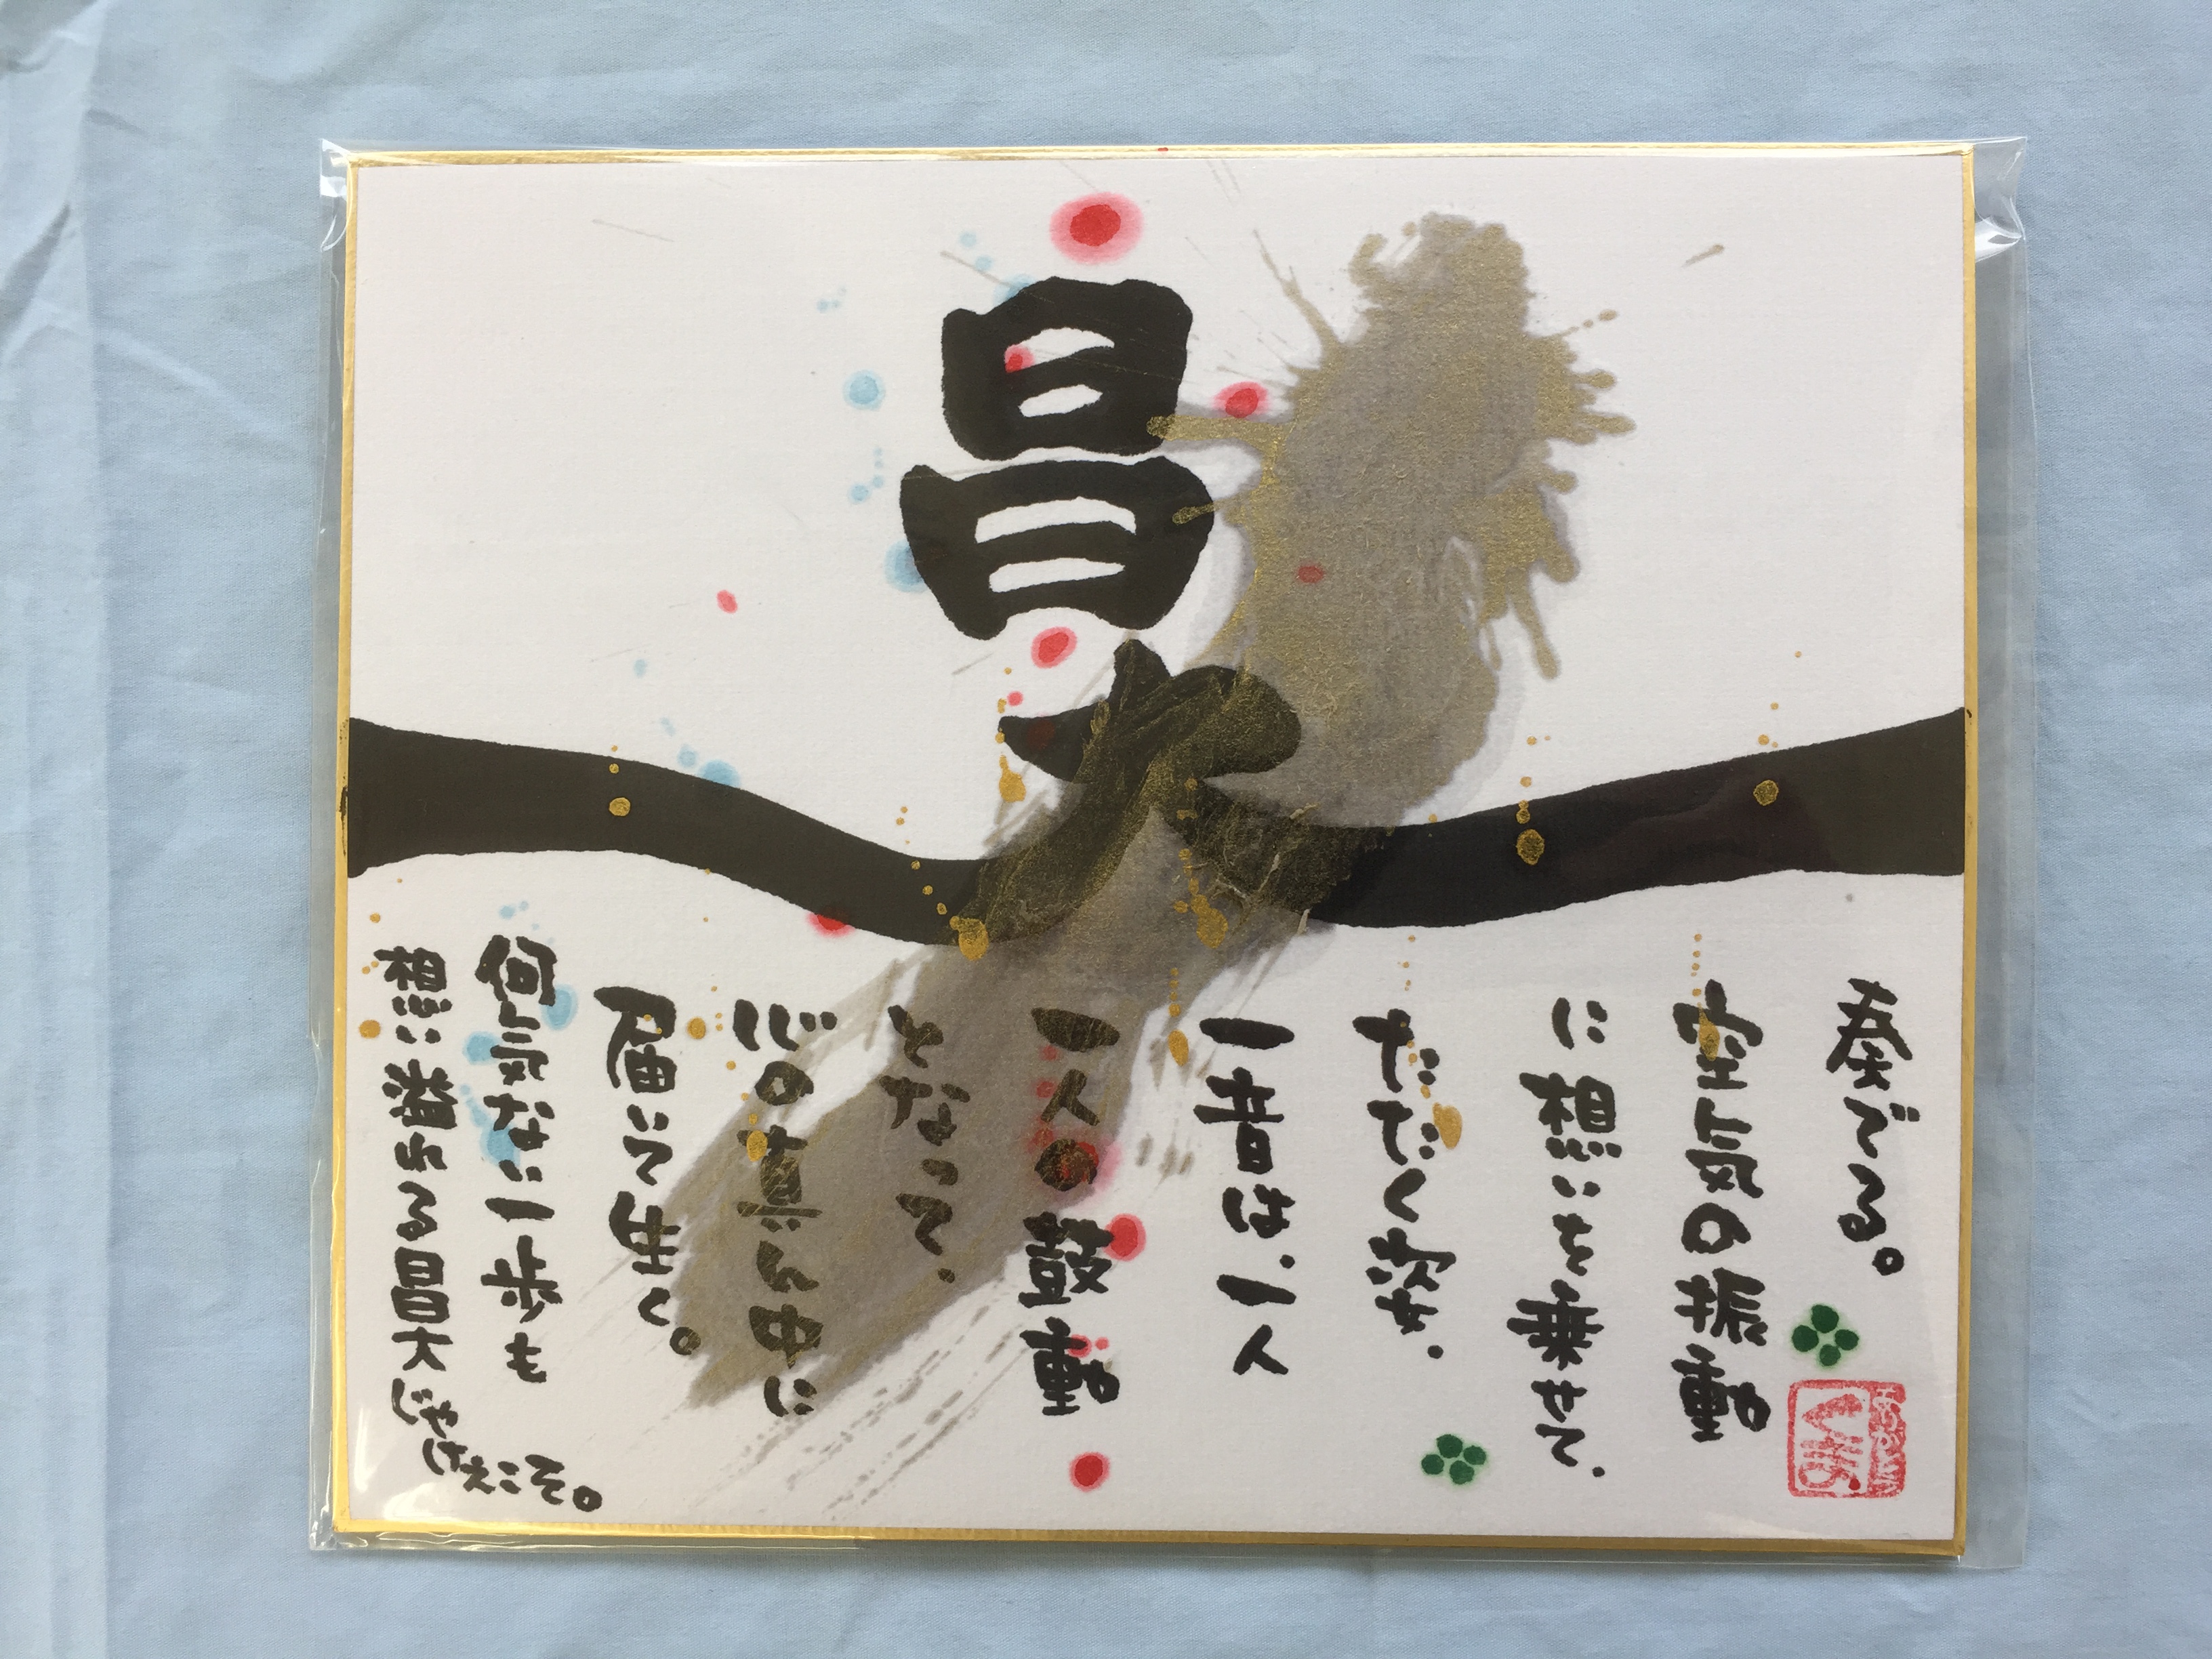 昌大
奏でる。
空気の振動
に想いを乗せて、
たたく姿、
一音は、一人
一人の鼓動
となって、
心の真ん中に
届いて生く。
何気ない一歩も
想い溢れる昌大じゃけえこそ。